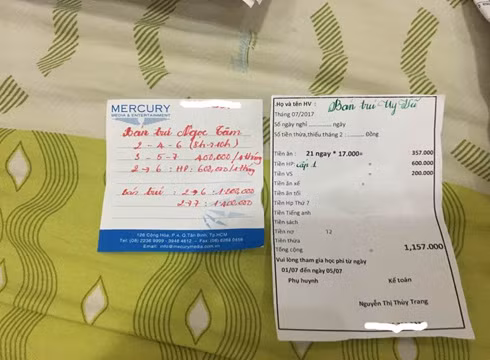 MERCURY
MEDIA & ENTERTAINMENT
Bán trú Ngọc Tâm
2 - 4 - 6 (8h - 10h)
3 - 5 - 7 400,000/tháng
2 → 6 : HP: 600,000/tháng
Bán trú : 2→6 : 1.200,000
2→7 : 1.400.000
126 Cộng Hòa, P.4, Q.Tân Bình, Tp.HCM
Họ và tên HV : Bán trú
Tháng 07/2017
Số ngày nghỉ ............ ngày
Số tiền thừa,thiếu tháng 2 ............ Đồng
Tiền ăn : 21 ngay * 17.000= 357.000
Tiền HP: cấp 1 = 600.000
Tiền VS = 200.000
Tiền ăn xế =
Tiền ăn tối
Tiền Hp Thứ 7
Tiền Tiếng anh
Tiền sách
Tiền nợ 12
Tiền thừa
Tổng cộng = 1,157.000
Vui lòng tham gia học phí từ ngày
01/07 đến ngày 05/07
Phụ huynh Kế toán
Nguyễn Thị Thùy Trang